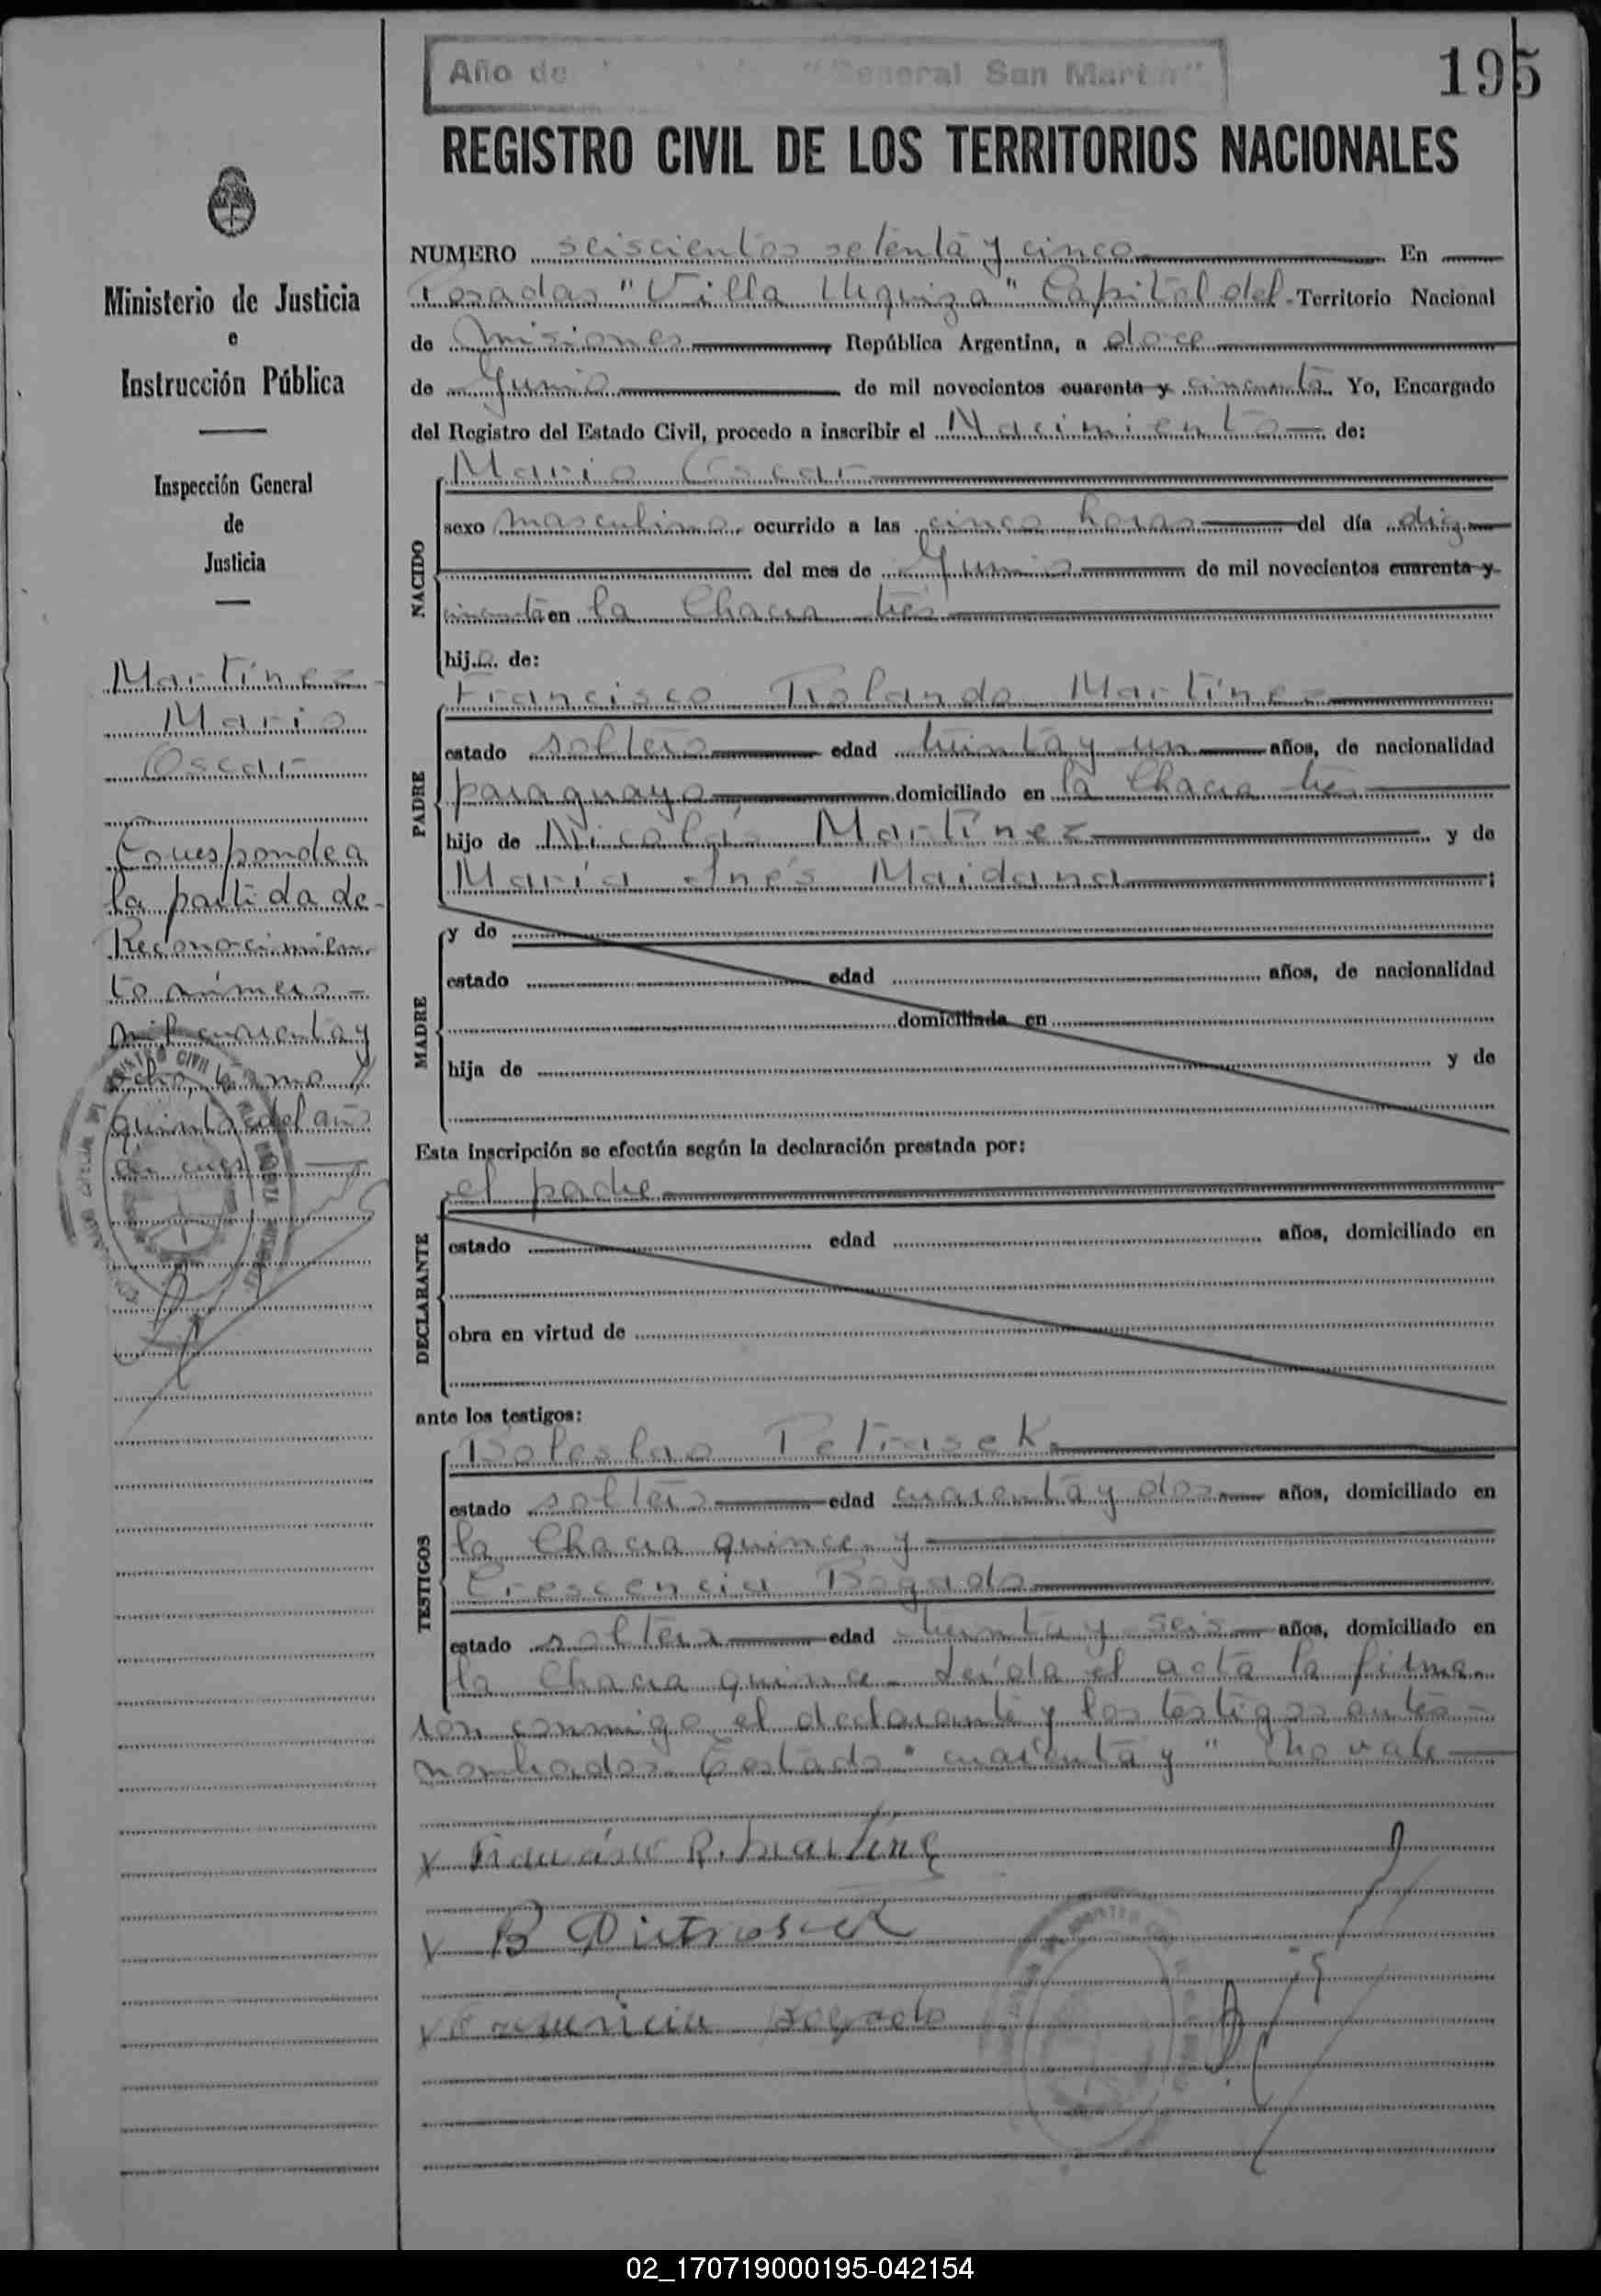 Año de "General San Martín"
195
REGISTRO CIVIL DE LOS TERRITORIOS NACIONALES
Ministerio de Justicia
e
Instrucción Pública
Inspección General
de
Justicia
Martínez
Mario
Oscar
Corresponde a
la partida de
Reconocimien
to número
mil cuarenta y
ocho, tomo
quinto del año
NUMERO seiscientos setenta y cinco En
Posadas "Villa Urquiza" Capital del Territorio Nacional
de Misiones República Argentina, a doce
de Junio de mil novecientos cuarenta y cincuenta Yo, Encargado
del Registro del Estado Civil, procedo a inscribir el Nacimiento de:
NACIDO
Mario Oscar
sexo masculino ocurrido a las cinco horas del día diez
del mes de Junio de mil novecientos cuarenta y
cincuenta en la Chacra tres
hijo de:
PADRE
Francisco Rolando Martínez
estado soltero edad treinta y un años, de nacionalidad
paraguayo domiciliado en la Chacra tres
hijo de Nicolás Martínez y de
María Inés Maidana ;
MADRE
y de
estado edad años, de nacionalidad
domiciliada en
hija de y de
Esta inscripción se efectúa según la declaración prestada por:
DECLARANTE
el padre
estado edad años, domiciliado en
obra en virtud de
ante los testigos:
TESTIGOS
Boleslao Petrasek
estado soltero edad cuarenta y dos años, domiciliado en
la Chacra quince y
Crescencia Bogado
estado soltera edad treinta y seis años, domiciliado en
la Chacra quince. Leída el acta la firma
ron conmigo el declarante y los testigos antes
nombrados. Testado "cuarenta y" No vale
x Francisco R. Martínez
B Pietrasek
Bogado
02_170719000195-042154